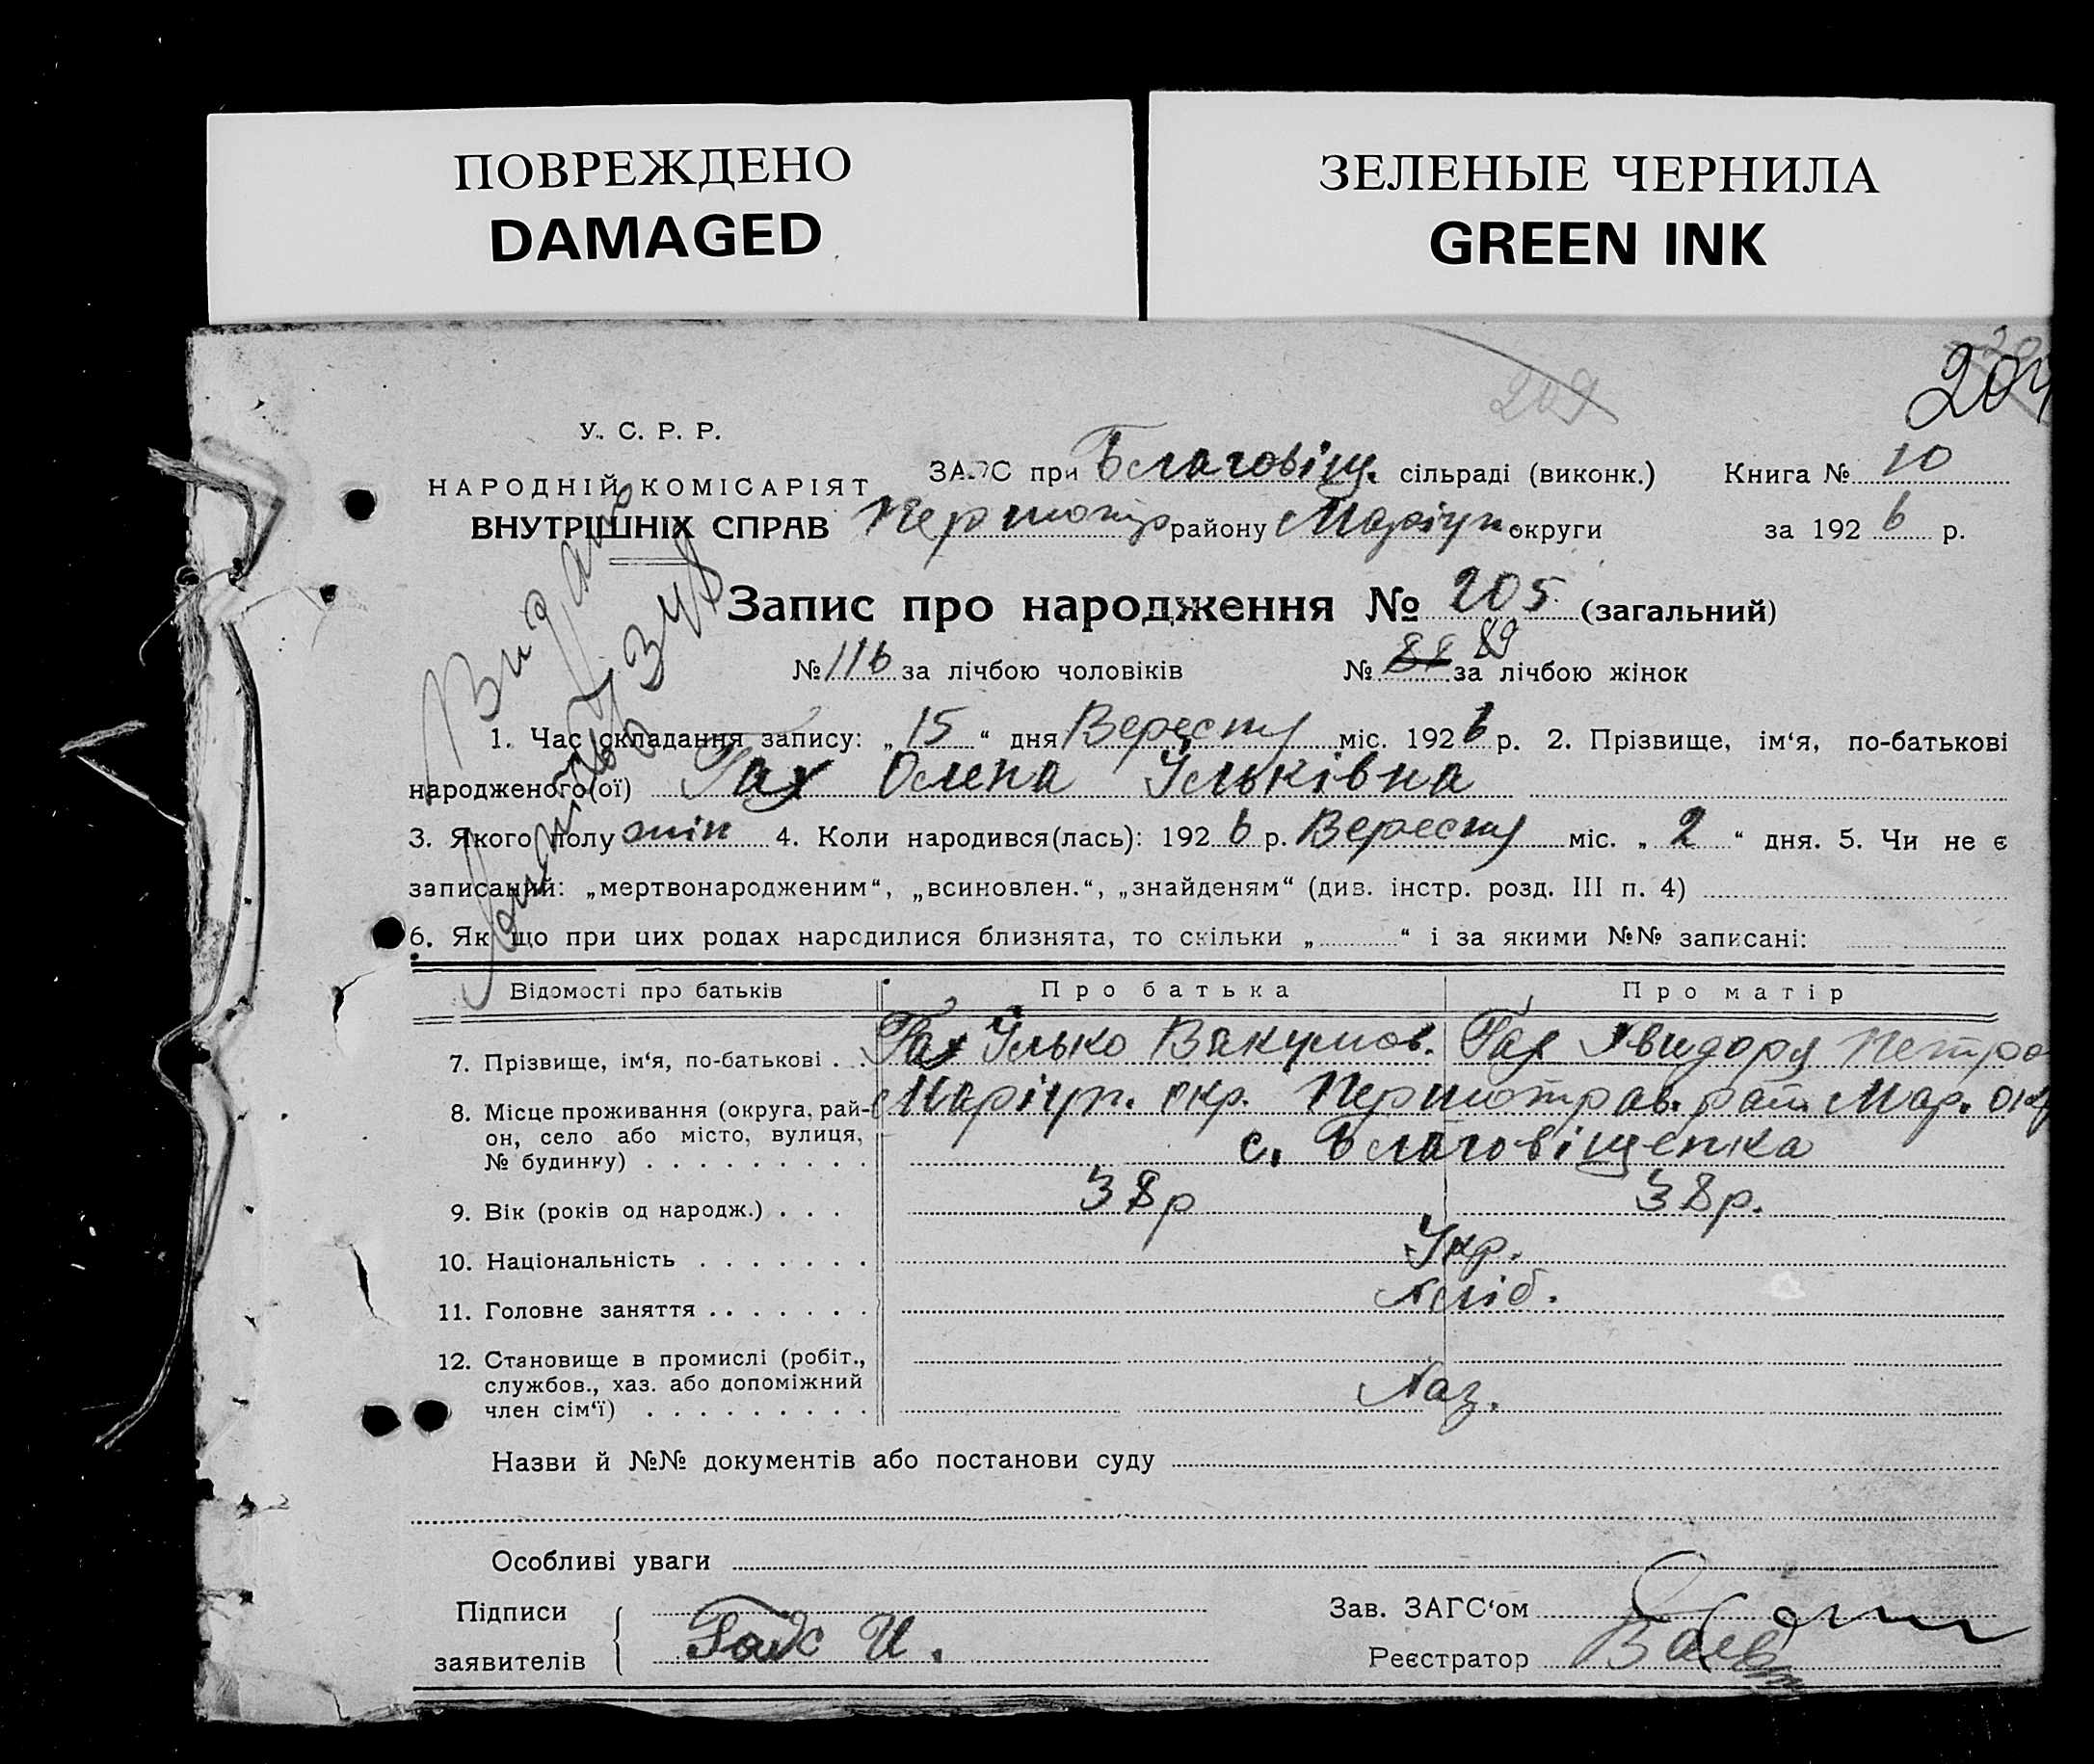 ПОВРЕЖДЕНО
DAMAGED
ЗЕЛЕНЫЕ ЧЕРНИЛА
GREEN INK
209
204
У. С. Р. Р.
НАРОДНІЙ КОМІСАРІЯТ
ВНУТРІШНІХ СПРАВ
ЗАГС при Благовіщ. сільраді (виконк.) Книга № 10
Першотр району Маріуп. округи за 1926 р.
Видано
Запис про народження № 205 (загальний)
№ 116 за лічбою чоловіків № 88 89 за лічбою жінок
1. Час складання запису: „15“ дня Вересня міс. 1926 р. 2. Прізвище, ім'я, по-батькові
народженого(ої) Гах Олена Ільківна
3. Якого полу жін 4. Коли народився(лась): 1926 р. Вересня міс. „2“ дня. 5. Чи не є
записаний: „мертвонародженим“, „всиновлен.“, „знайденям“ (див. інстр. розд. III п. 4)
6. Як що при цих родах народилися близнята, то скільки „ “ і за якими №№ записані:
Відомості про батьків Про батька Про матір
7. Прізвище, ім‘я, по-батькові . . Гах Ілько Вакумов. Гах Явидоря Петро
8. Місце проживання (округа, рай- Маріуп. окр. Першотрав. рай. Мар. окр
он, село або місто, вулиця, с. Благовіщенка
№ будинку) . . . . . . . . .
9. Вік (років од народж.) . . . 38р 38р.
10. Національність . . . . . . . Укр.
11. Головне заняття . . . . . . . Хліб.
12. Становище в промислі (робіт.,
службов., хаз. або допоміжний Хаз.
член сім‘ї) . . . . . . . . .
Назви й №№ документів або постанови суду
Особливі уваги
Підписи
заявителів Гах И.
Зав. ЗАГС‘ом
Реєстратор